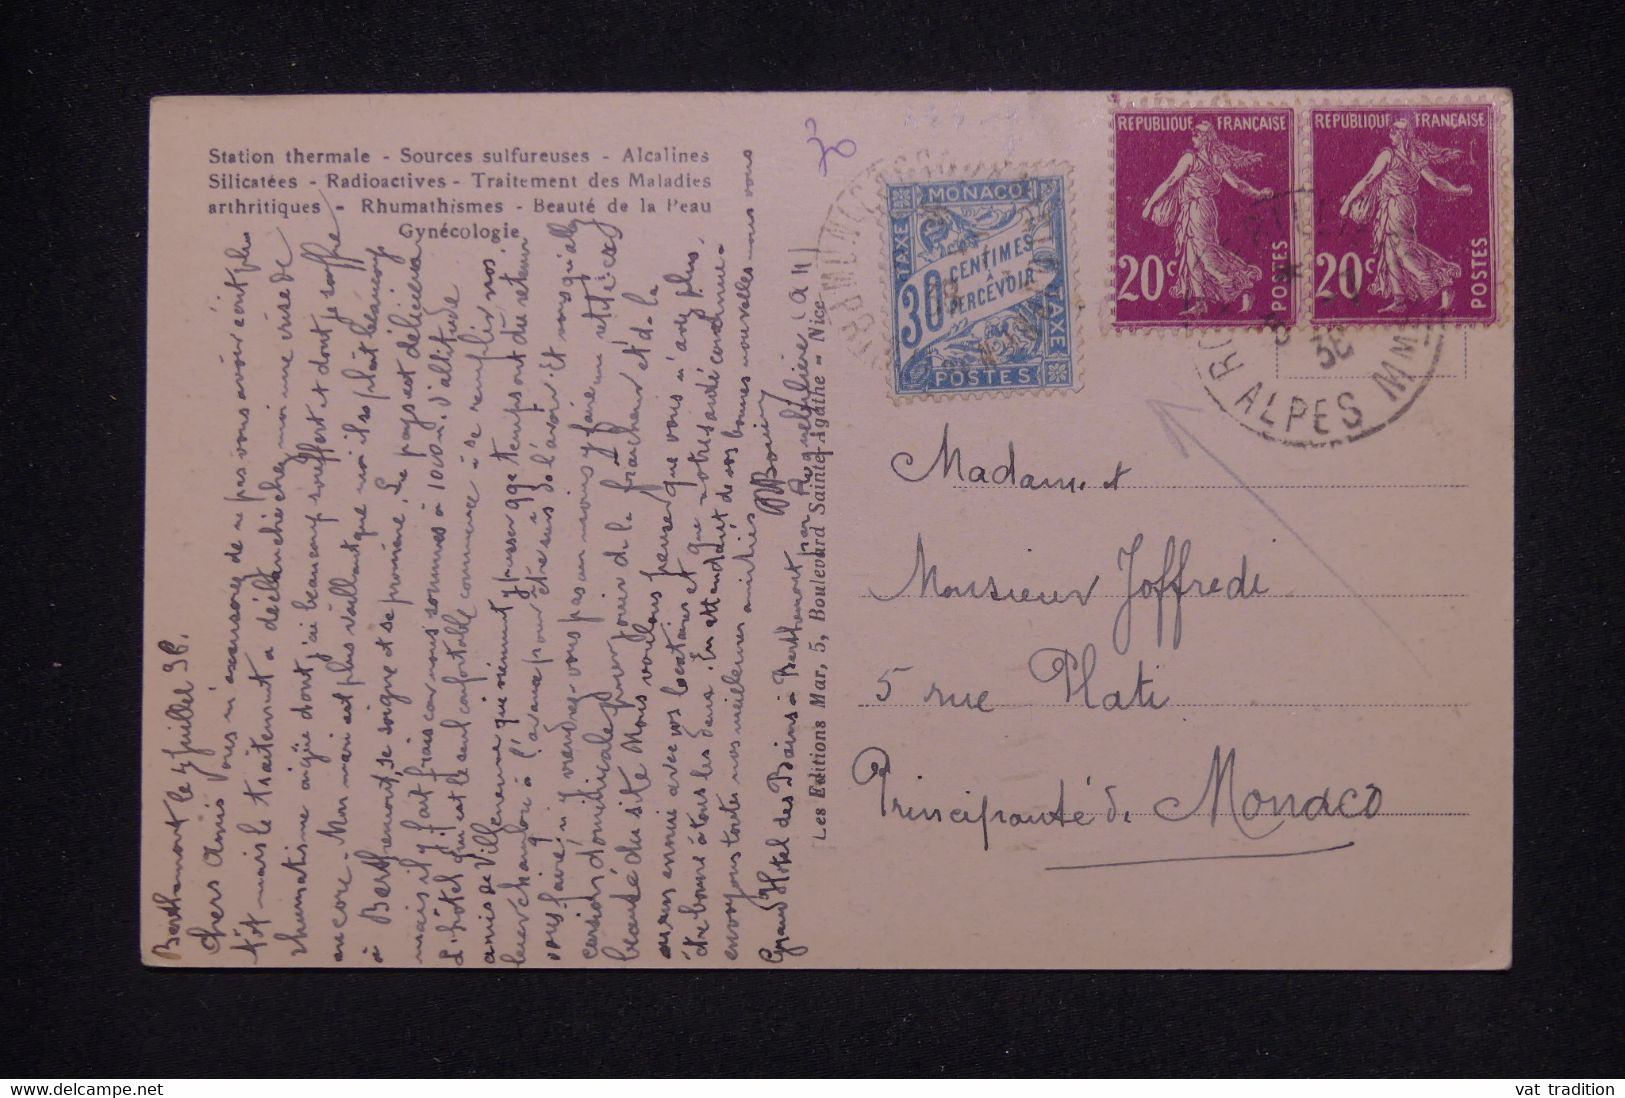 Station thermale - Sources sulfureuses - Alcalines
Silicatées - Radioactives - Traitement des Maladies
arthritiques - Rhumathismes - Beauté de la Peau
Gynécologie
Berthemont le 4 Juillet 38.
Chers Amis vous m'excuserez de ne pas vous avoir écrit plus
tôt mais le traitement a déclanché chez moi une crise de
rhumatisme aigüe dont j'ai beaucoup souffert et dont je souffre
encore - Mon mari est plus vaillant que moi il se plaît beaucoup
à Berthemont, se soigne et se promène. Le pays est délicieux
mais il y fait frais car nous sommes à 1000 m. d'altitude
L'hôtel qui est le seul confortable commence à se remplir nos
amis de Villeneuve que viennent y passer qqe temps ont dû retenir
leur chambre à l'avance pour être sûrs de l'avoir et
vous faire! n'y viendrez-vous pas au moins y faire un
domiciliales pour jouir de la fraîcheur et de la
beauté du site Nous voulons penser que vous n'avez plus
aucun ennui avec vos locataires et que votre santé continue
être bonne à tous les deux. En attendant de vos bonnes nouvelles nous vous
envoyons toutes nos meilleures amitiés
Grand Hôtel des Bains à Berthemont par Roquebillière (A M)
Les Editions Mar, 5, Boulevard Sainte-Agathe - Nice
70
MONACO
TAXE
TAXE
30
CENTIMES
A
PERCEVOIR
POSTES
REPUBLIQUE FRANÇAISE
20c
POSTES
REPUBLIQUE FRANÇAISE
20c
POSTES
38
ALPES MMES
Madame et
Monsieur Joffredi
5 rue Plati
Principauté de Monaco
vat tradition
Delcampe.net